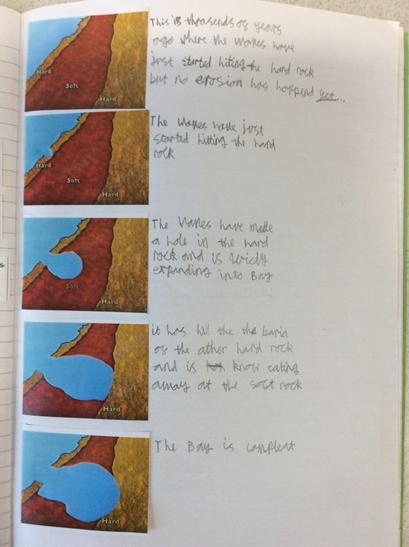 Hard
Soft
Hard
This is thousends of years
ago where the waves have
just started hiting the hard rock
but no erosion has happend yet...
Hard
Soft
Hard
The waves have just
started hitting the hard
rock
Soft
Hard
The waves have made
a hole in the hard
rock and is
expanding into Bay
Hard
it has hit the the
of the other hard rock
and is know eating
away at the soft rock
Hard
The Bay is compleat